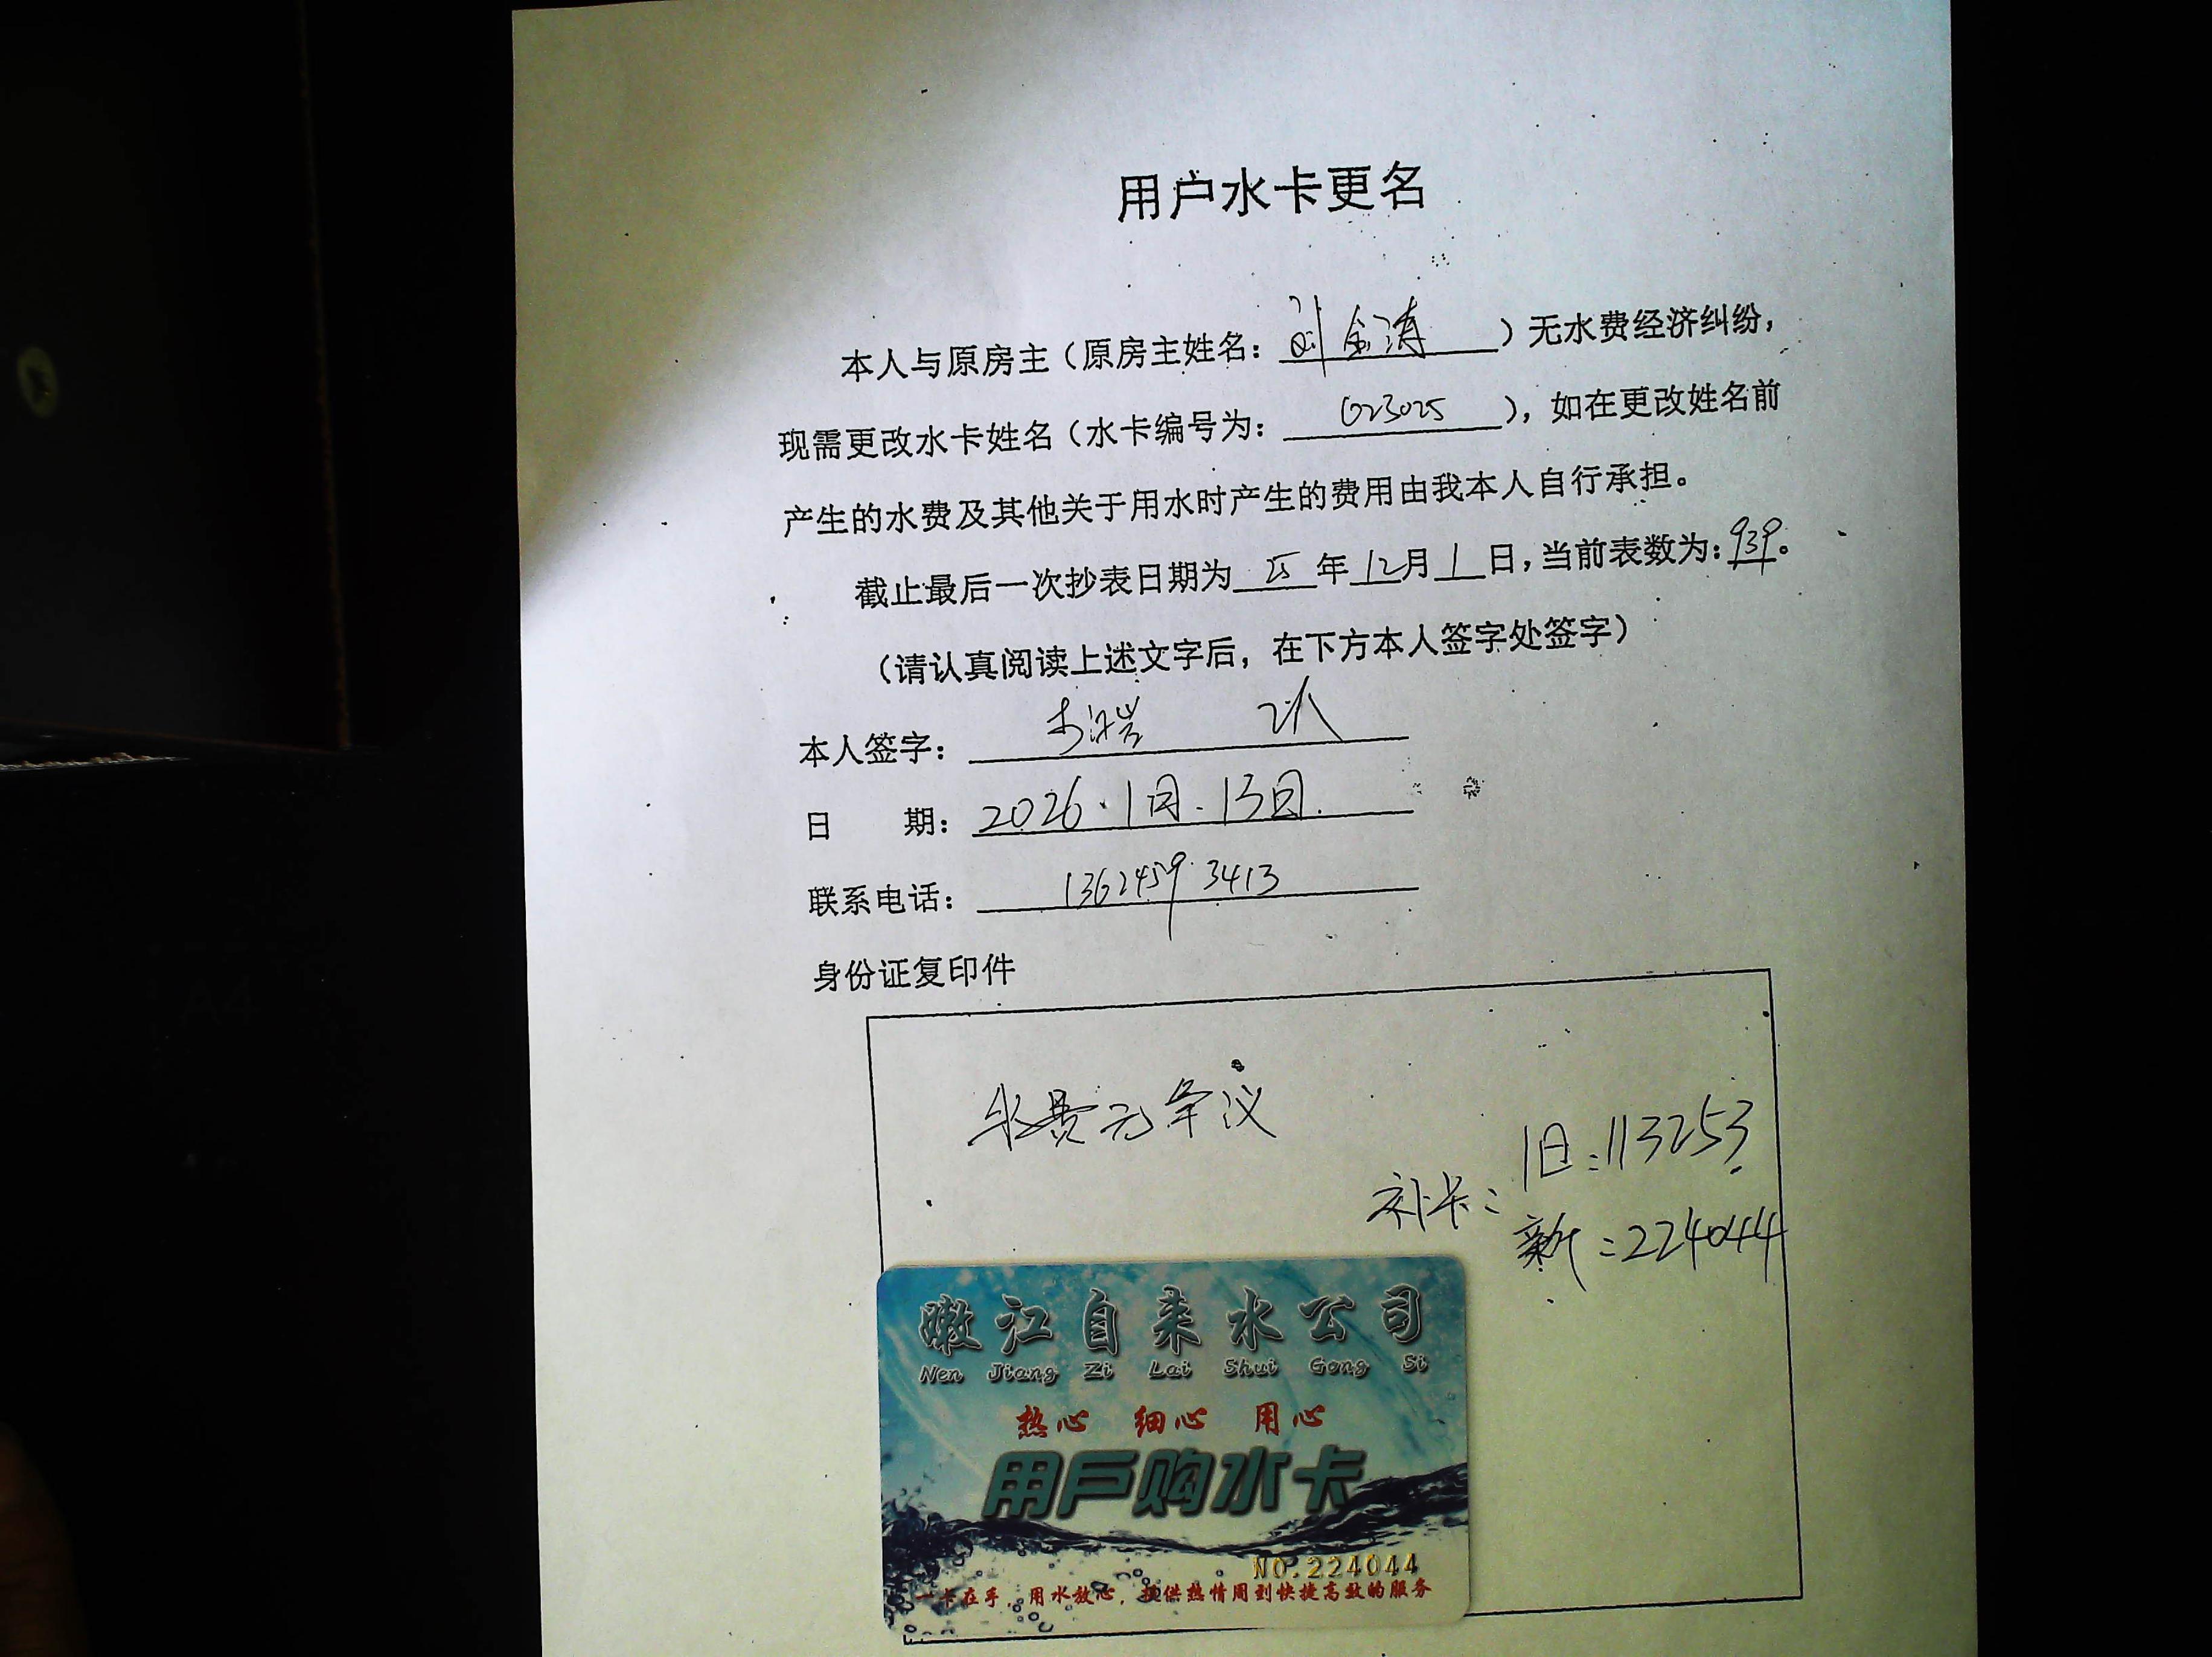 用户水卡更名
本人与原房主（原房主姓名：刘金涛）无水费经济纠纷，
现需更改水卡姓名（水卡编号为：023025），如在更改姓名前
产生的水费及其他关于用水时产生的费用由我本人自行承担。
截止最后一次抄表日期为25年12月1日，当前表数为：939。
（请认真阅读上述文字后，在下方本人签字处签字）
本人签字：
日 期：2026.1月.13日.
联系电话：13624593413
身份证复印件
水费无争议
补卡：旧：113253
新：224044
嫩江自来水公司
Nen Jiang Zi Lai Shui Gong Si
热心 细心 用心
用户购水卡
NO.224044
一卡在手，用水放心，提供热情周到快捷高效的服务